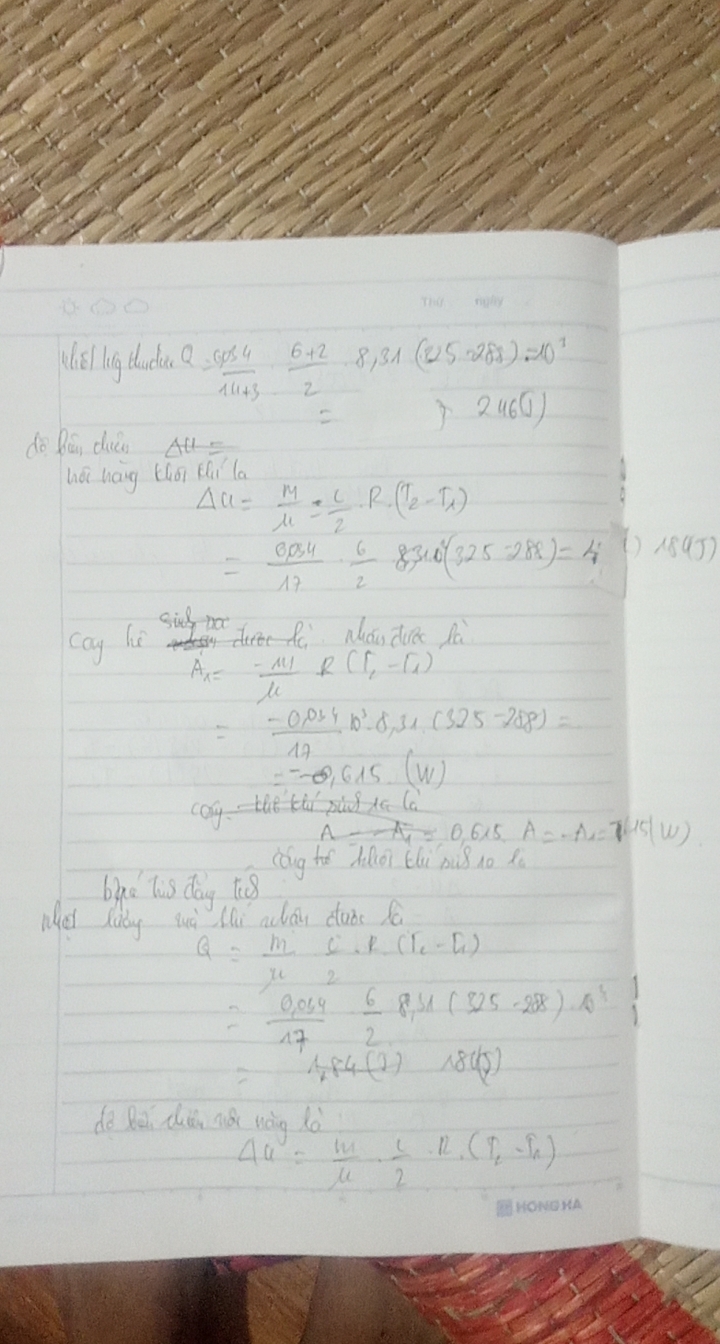 Thứ ngày
nhiệt lượng Q = 0,034 / 14+3 . 6+2 / 2 . 8,31 (325-288) . 10³
= 246(J)
độ biến thiên ΔU =
nội năng khối khí là
ΔU = m/μ . i/2 . R . (T₂ - T₁)
= 0,034/17 . 6/2 8,31 (325-288) = 184(J)
công hệ sinh được là nhận được là
A₁ = -m/μ R (T₂ - T₁)
= -0,034/17 10³ 8,31 (325-288) =
= - ,615 (W)
công khí sinh ra là
A = A₁ = 0,615 A = -A₁ = 615(W)
công khối khí sinh ra là
đẳng tích
nhiệt lượng mà khí nhận được là
Q = m/μ i/2 . R (T₂ - T₁)
= 0,034/17 6/2 8,31 (325-288) . 10³
= 1,84(J) 184(J)
độ biến thiên nội năng là
ΔU = m/μ . i/2 . R . (T₂ - T₁)
HONG HA